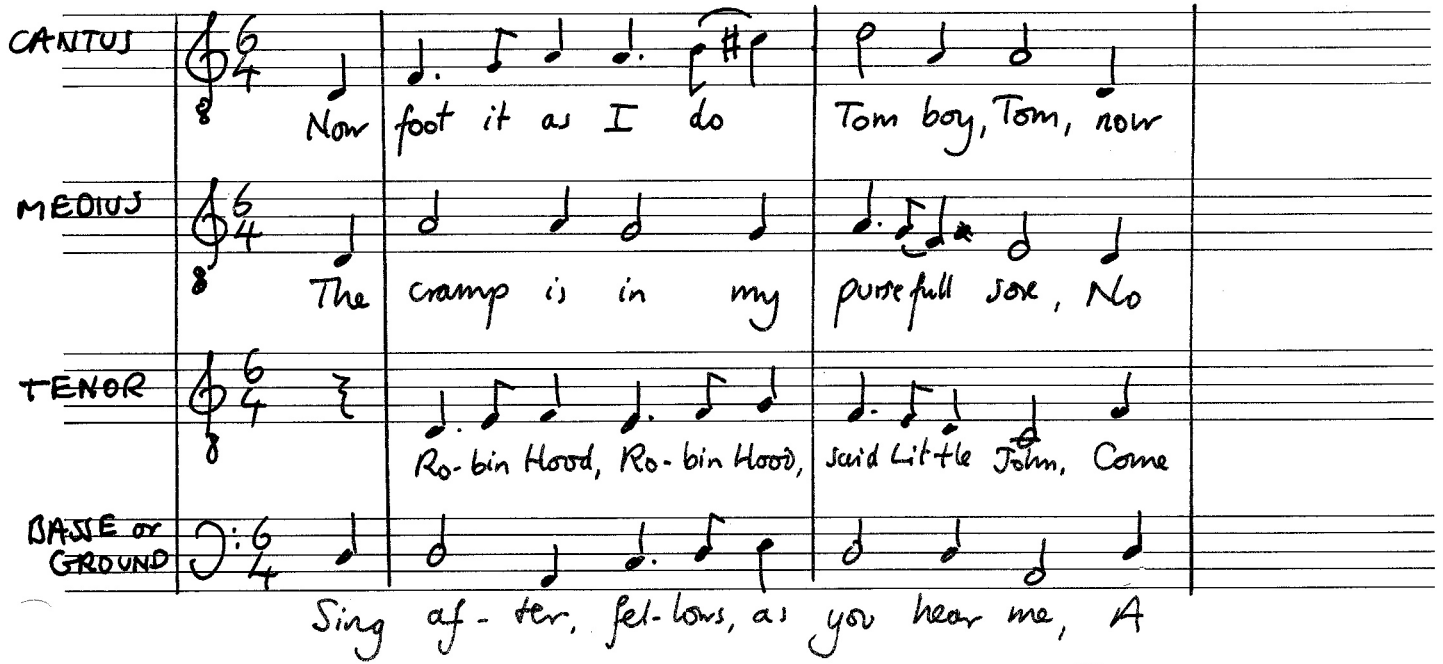 CANTUS 6 4
8
Now foot it as I do Tom boy, Tom, now
MEDIUS 6 4
8
The cramp is in my purse full sore, No
TENOR 6 4
8
Ro-bin Hood, Ro-bin Hood, said Lit-tle John, Come
BASSE or
GROUND 6 4
Sing af-ter, fel-lows, as you hear me, A